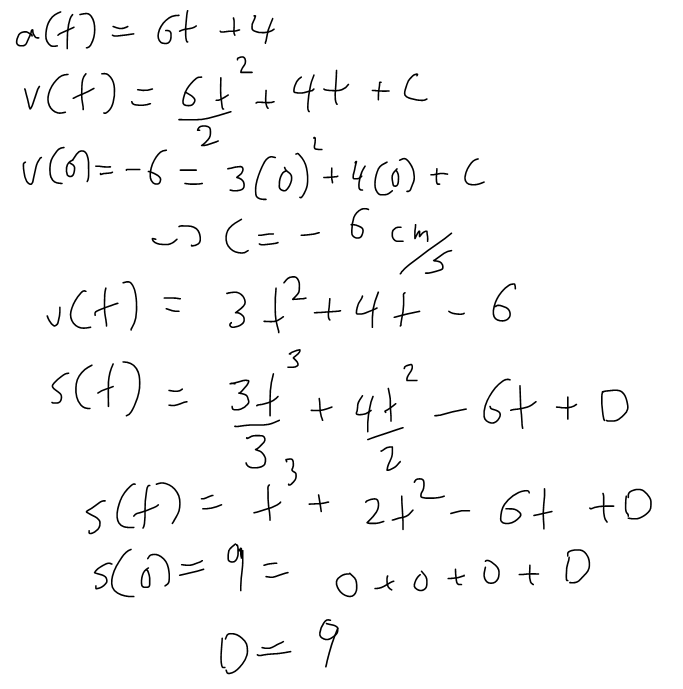 a(t) = 6t + 4
v(t) = 6t²/2 + 4t + C
v(0) = -6 = 3(0)² + 4(0) + C
↝ C = - 6 cm/s
v(t) = 3t² + 4t - 6
s(t) = 3t³/3 + 4t²/2 - 6t + D
s(t) = t³ + 2t² - 6t + D
s(0) = 9 = 0 + 0 + 0 + D
D = 9